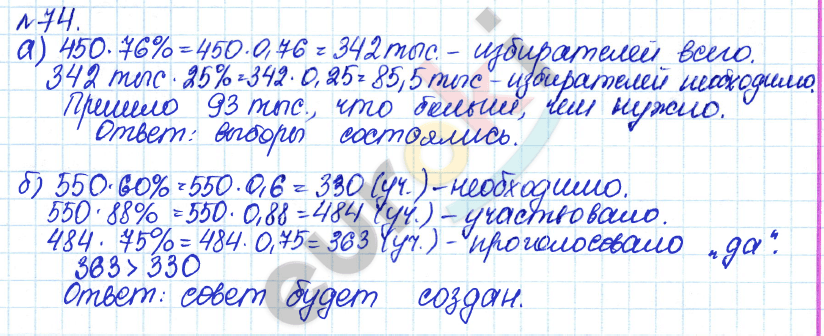 №74.
а) 450·76%=450·0,76=342 тыс. - избирателей всего.
342 тыс·25%=342·0,25=85,5 тыс - избирателей необходимо.
Пришло 93 тыс., что больше, чем нужно.
Ответ: выборы состоялись.
б) 550·60%=550·0,6=330 (уч.) - необходимо.
550·88%=550·0,88=484 (уч.) - участвовало.
484·75%=484·0,75=363 (уч.) - проголосовало „да“.
363>330
Ответ: совет будет создан.
euroki